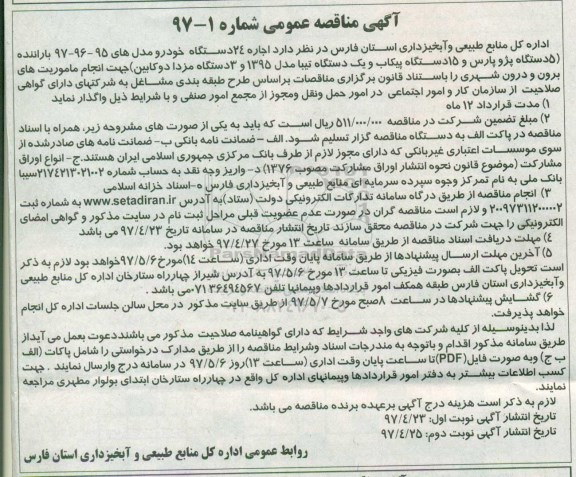 آگهی مناقصه عمومی شماره ۱-۹۷
اداره کل منابع طبیعی وآبخیزداری استان فارس در نظر دارد اجاره ۲۴دستگاه خودرو مدل های ۹۵-۹۶-۹۷ باراننده
(۵دستگاه پژو پارس و ۱۵دستگاه پیکاب و یک دستگاه تیبا مدل ۱۳۹۵ و ۳دستگاه مزدا دوکابین)جهت انجام ماموریت های
برون و درون شهری را باستناد قانون برگزاری مناقصات براساس طرح طبقه بندی مشاغل به شرکتهای دارای گواهی
صلاحیت از سازمان کار و امور اجتماعی در امور حمل ونقل ومجوز از مجمع امور صنفی و با شرایط ذیل واگذار نماید
۱) مدت قرارداد ۱۲ ماه
۲) مبلغ تضمین شرکت در مناقصه ۵۱۱/۰۰۰/۰۰۰ ریال است که باید به یکی از صورت های مشروحه زیر، همراه با اسناد
مناقصه در پاکت الف به دستگاه مناقصه گزار تسلیم شود. الف -ضمانت نامه بانکی ب- ضمانت نامه های صادرشده از
سوی موسسات اعتباری غیربانکی که دارای مجوز لازم از طرف بانک مرکزی جمهوری اسلامی ایران هستند.ج- انواع اوراق
مشارکت (موضوع قانون نحوه انتشار اوراق مشارکت مصوب ۱۳۷۶) د- واریز وجه نقد به حساب شماره ۲۱۷۴۲۱۳۰۲۱۰۰۲سیبا
بانک ملی به نام تمرکز وجوه سپرده سرمایه ای منابع طبیعی و آبخیزداری فارس ه-اسناد خزانه اسلامی
۳) انجام مناقصه از طریق درگاه سامانه تدارکات الکترونیکی دولت (ستاد)به آدرس www.setadiran.ir به شماره ثبت
۲۰۰۹۷۳۱۱۲۰۰۰۰۰۲ و لازم است مناقصه گران در صورت عدم عضویت قبلی مراحل ثبت نام در سایت مذکور و گواهی امضای
الکترونیکی را جهت شرکت در مناقصه محقق سازند تاریخ انتشار مناقصه در سامانه تاریخ ۹۷/۴/۲۳ می باشد
۴) مهلت دریافت اسناد مناقصه از طریق سامانه ساعت ۱۳ مورخ ۹۷/۴/۲۷ خواهد بود.
۵) آخرین مهلت ارسال پیشنهادها از طریق سامانه پایان وقت اداری (ساعت ۱۴)مورخ۹۷/۵/۶خواهد بود لازم به ذکر
است تحویل پاکت الف بصورت فیزیکی تا ساعت ۱۳ مورخ ۹۷/۵/۶ به آدرس شیراز چهارراه ستارخان اداره کل منابع طبیعی
وآبخیزداری استان فارس طبقه همکف امور قراردادها وپیمانها تلفن ۳۶۴۹۴۵۶۷-۰۷۱ می باشد.
۶) گشایش پیشنهادها در ساعت ۸صبح مورخ ۹۷/۵/۷ از طریق سایت مذکور در محل سالن جلسات اداره کل انجام
خواهد پذیرفت.
لذا بدینوسیله از کلیه شرکت های واجد شرایط که دارای گواهینامه صلاحیت مذکور می باشنددعوت بعمل می آیداز
طریق سامانه مذکور اقدام و باتوجه به مندرجات اسناد وشرایط مناقصه را از طریق مدارک درخواستی را شامل پاکات (الف
ب ج) وبه صورت فایل(PDF)تا ساعت پایان وقت اداری (ساعت ۱۳)روز ۹۷/۵/۶ در سامانه درج وارسال نمایند . جهت
کسب اطلاعات بیشتر به دفتر امور قراردادها وپیمانهای اداره کل واقع در چهارراه ستارخان ابتدای بولوار مطهری مراجعه
نمایند.
لازم به ذکر است هزینه درج آگهی برعهده برنده مناقصه می باشد.
تاریخ انتشار آگهی نوبت اول: ۹۷/۴/۲۳
تاریخ انتشار آگهی نوبت دوم: ۹۷/۴/۲۵
روابط عمومی اداره کل منابع طبیعی و آبخیزداری استان فارس